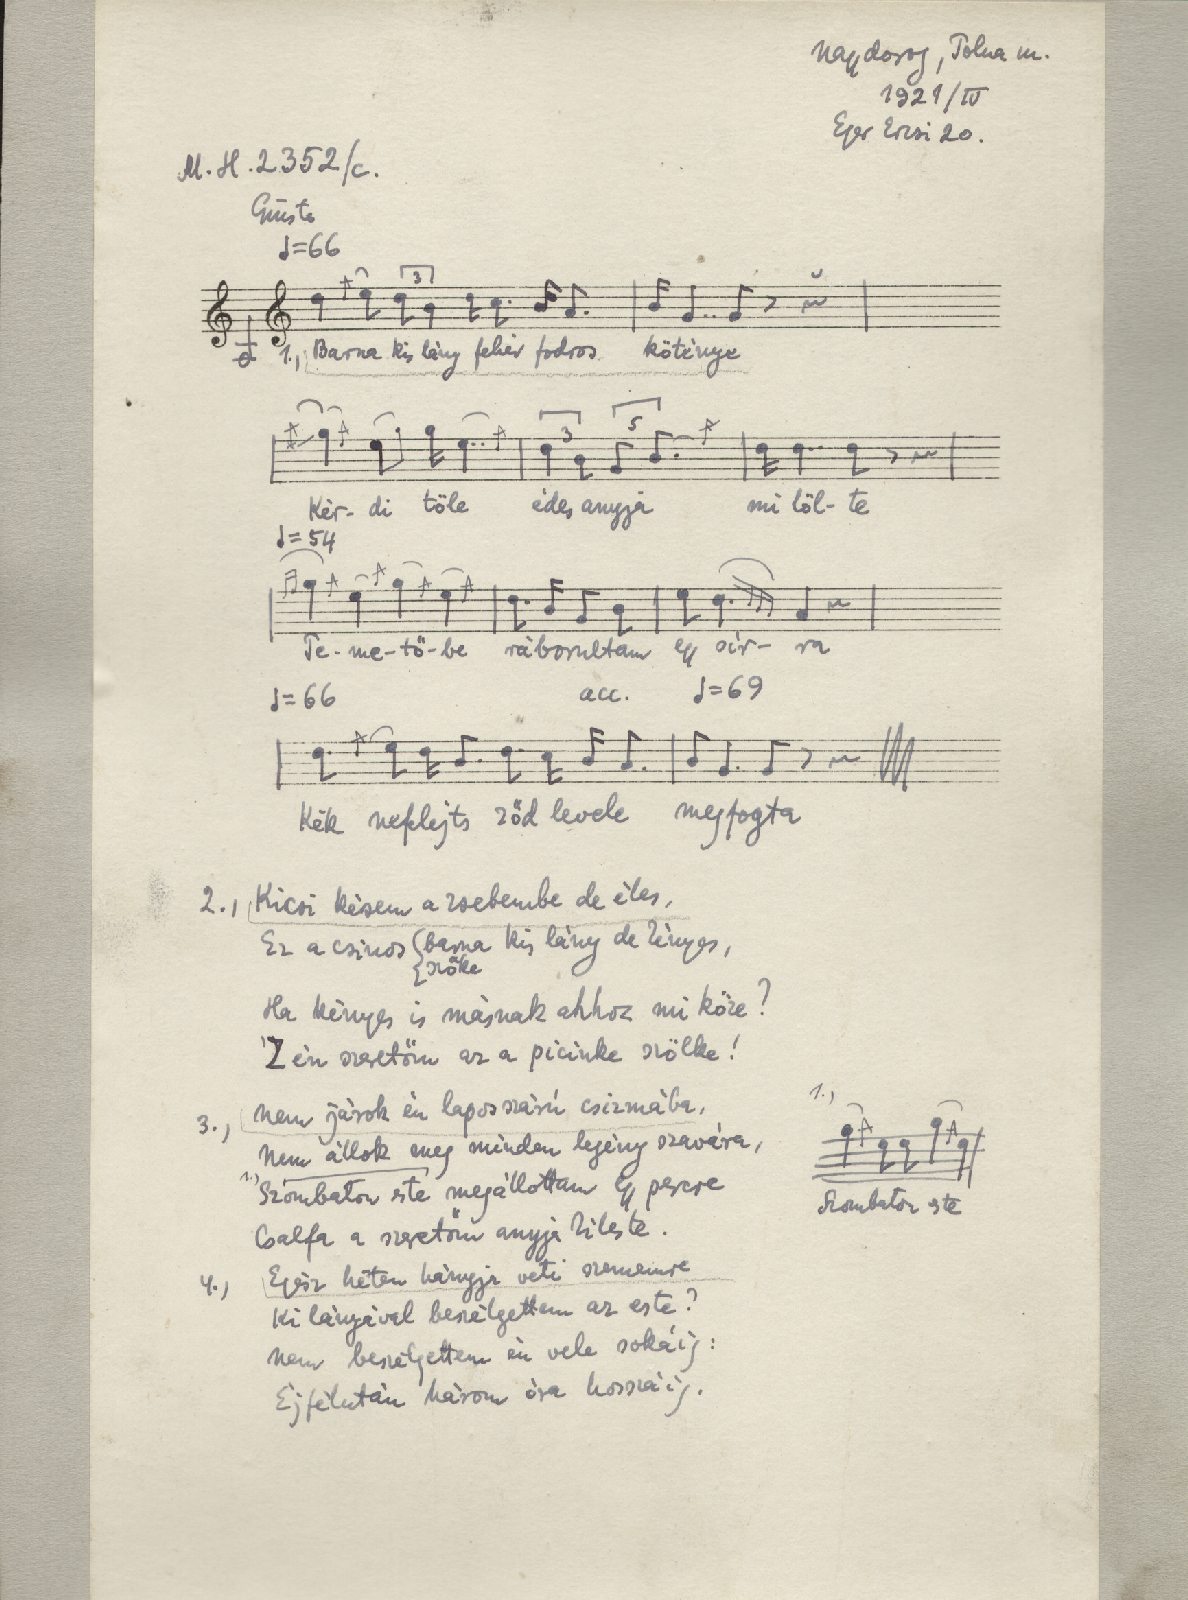 Nagydorog, Tolna m.
1921/IV
Eger Erzsi 20.
M.H. 2352/c.
Giusto
♩=66
3
1., Barna kis lány fehér fodros köténye
3 5
Kér- di töle édes anyja mi löl- te
♩=54
Te- me- tö- be ráborultam egy sír- ra
♩=66 acc. ♩=69
Kék neflejts zöd levele megfogta
2., Kicsi késem a zsebembe de éles,
Ez a csinos {barna kis lány de kényes,
{szöke
Ha kényes is másnak ahhoz mi köze?
'Z én szeretöm az a picinke szölke!
3., Nem járok én laposszárú csizmába,
Nem állok meg minden legény szavára,
1.) Szombaton este megállottam egy percre
Csalfa a szeretöm anyja kileste.
1.,
Szombaton este
4., Egész héten hányja veti szememre
Ki lányával beszélgettem az este?
Nem beszélgettem én vele sokáig:
Éjfélután három óra hosszáig.